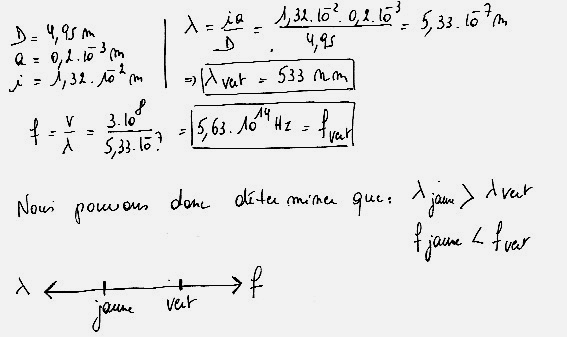 D = 4,95 m
a = 0,2.10⁻³ m
i = 1,32.10⁻² m
λ = ia/D = 1,32.10⁻².0,2.10⁻³/4,95 = 5,33.10⁻⁷ m
=> λvert = 533 nm
f = v/λ = 3.10⁸/5,33.10⁻⁷ = 5,63.10¹⁴ Hz = fvert
Nous pouvons donc déterminer que: λjaune > λvert
fjaune < fvert
λ f
jaune vert